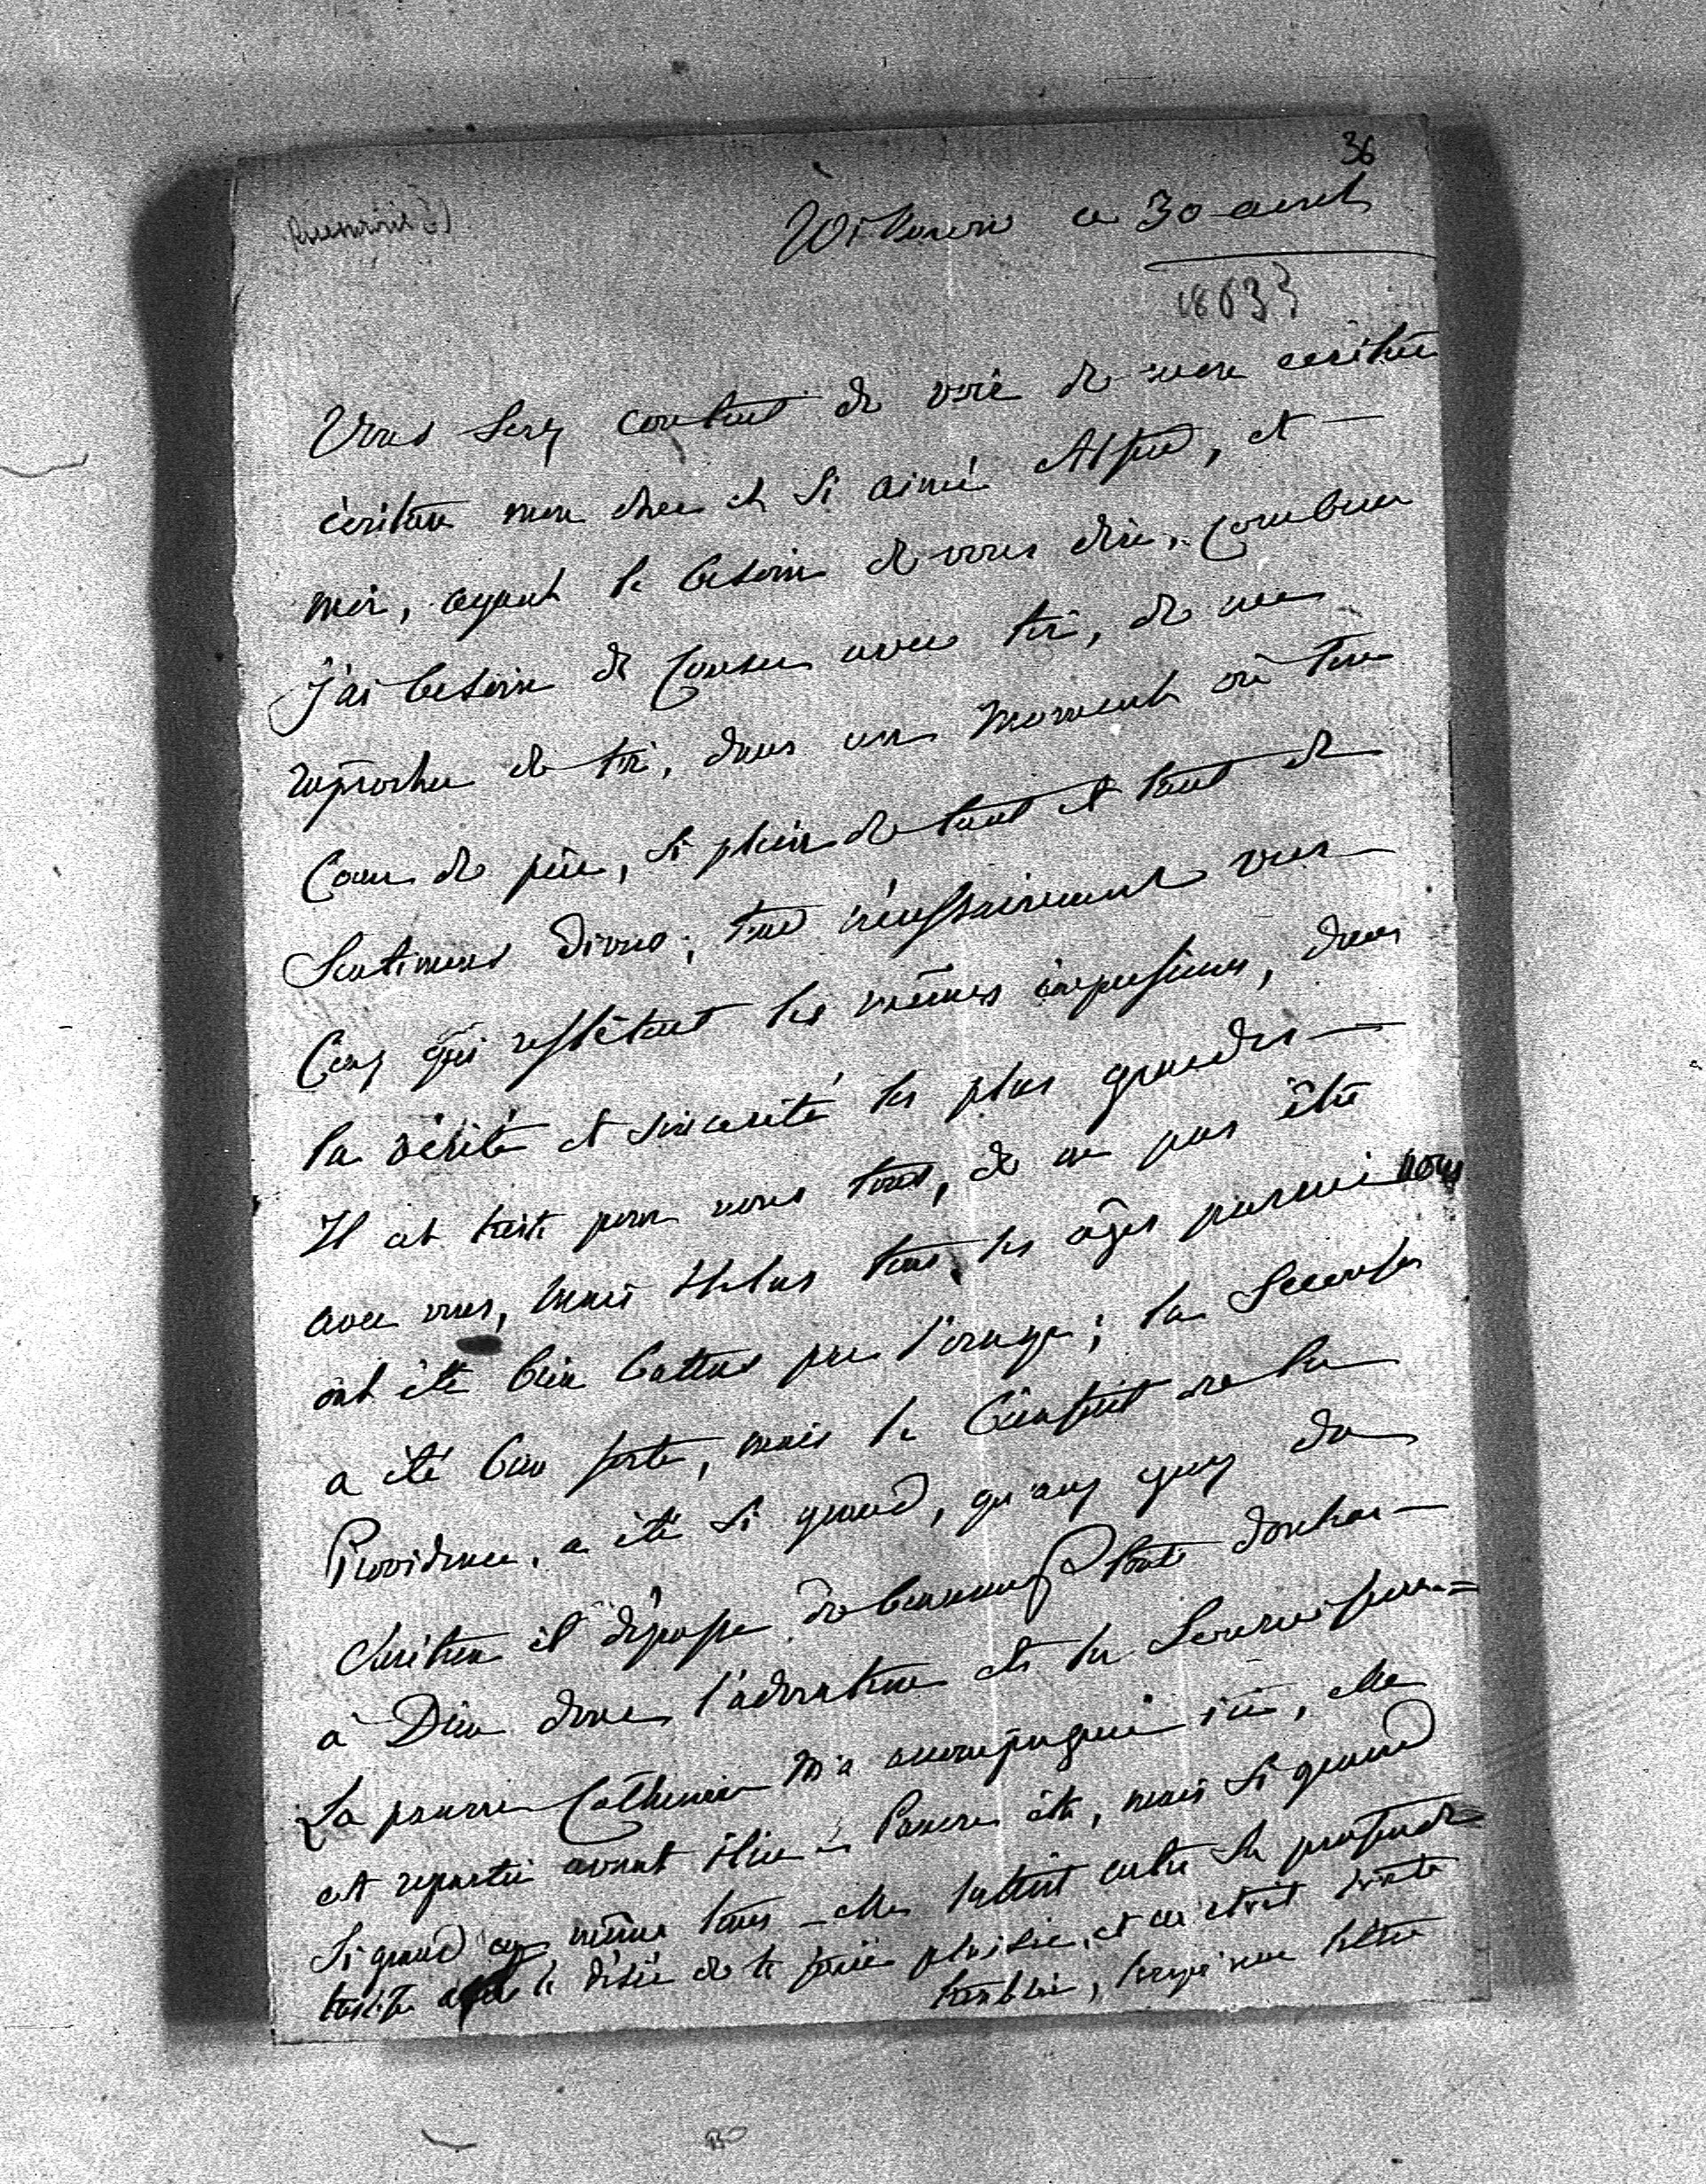 36
ce 30 avril
1863?
Vous serez content de voir de mon écriture
écriture mon cher et si aimé Alfred, et
moi, ayant le besoin de vous dire, combien
j'ai besoin de causer avec toi, de me
raprocher de toi, dans un moment où ton
Coeur de père, si plein de tout et tout de
Sentimens divers, tend nécessairement vers
Ceux qui reflètent les mêmes impressions, dans
la vérité et sincerité les plus grandes
Il est triste pour nous tous, de ne pas être
avec vous, mais Helas tous les ages parmi nous
ont été bien battus par l'orage; la Secousse
a été bien forte, mais le bienfait de la
Providence, a été si grand, qu'aux yeux du
chrétien il dépasse de beaucoup toute douleur
à Dieu donc l'adoration et la
La pauvre Catherine m'a accompagné ici, elle
est repartie avant hier Pauvre été, mais si grand
si grand en même tems - elle luttoit entre sa profonde
tristesse et le désir de te faire plaisir, et ce étoit
lettre